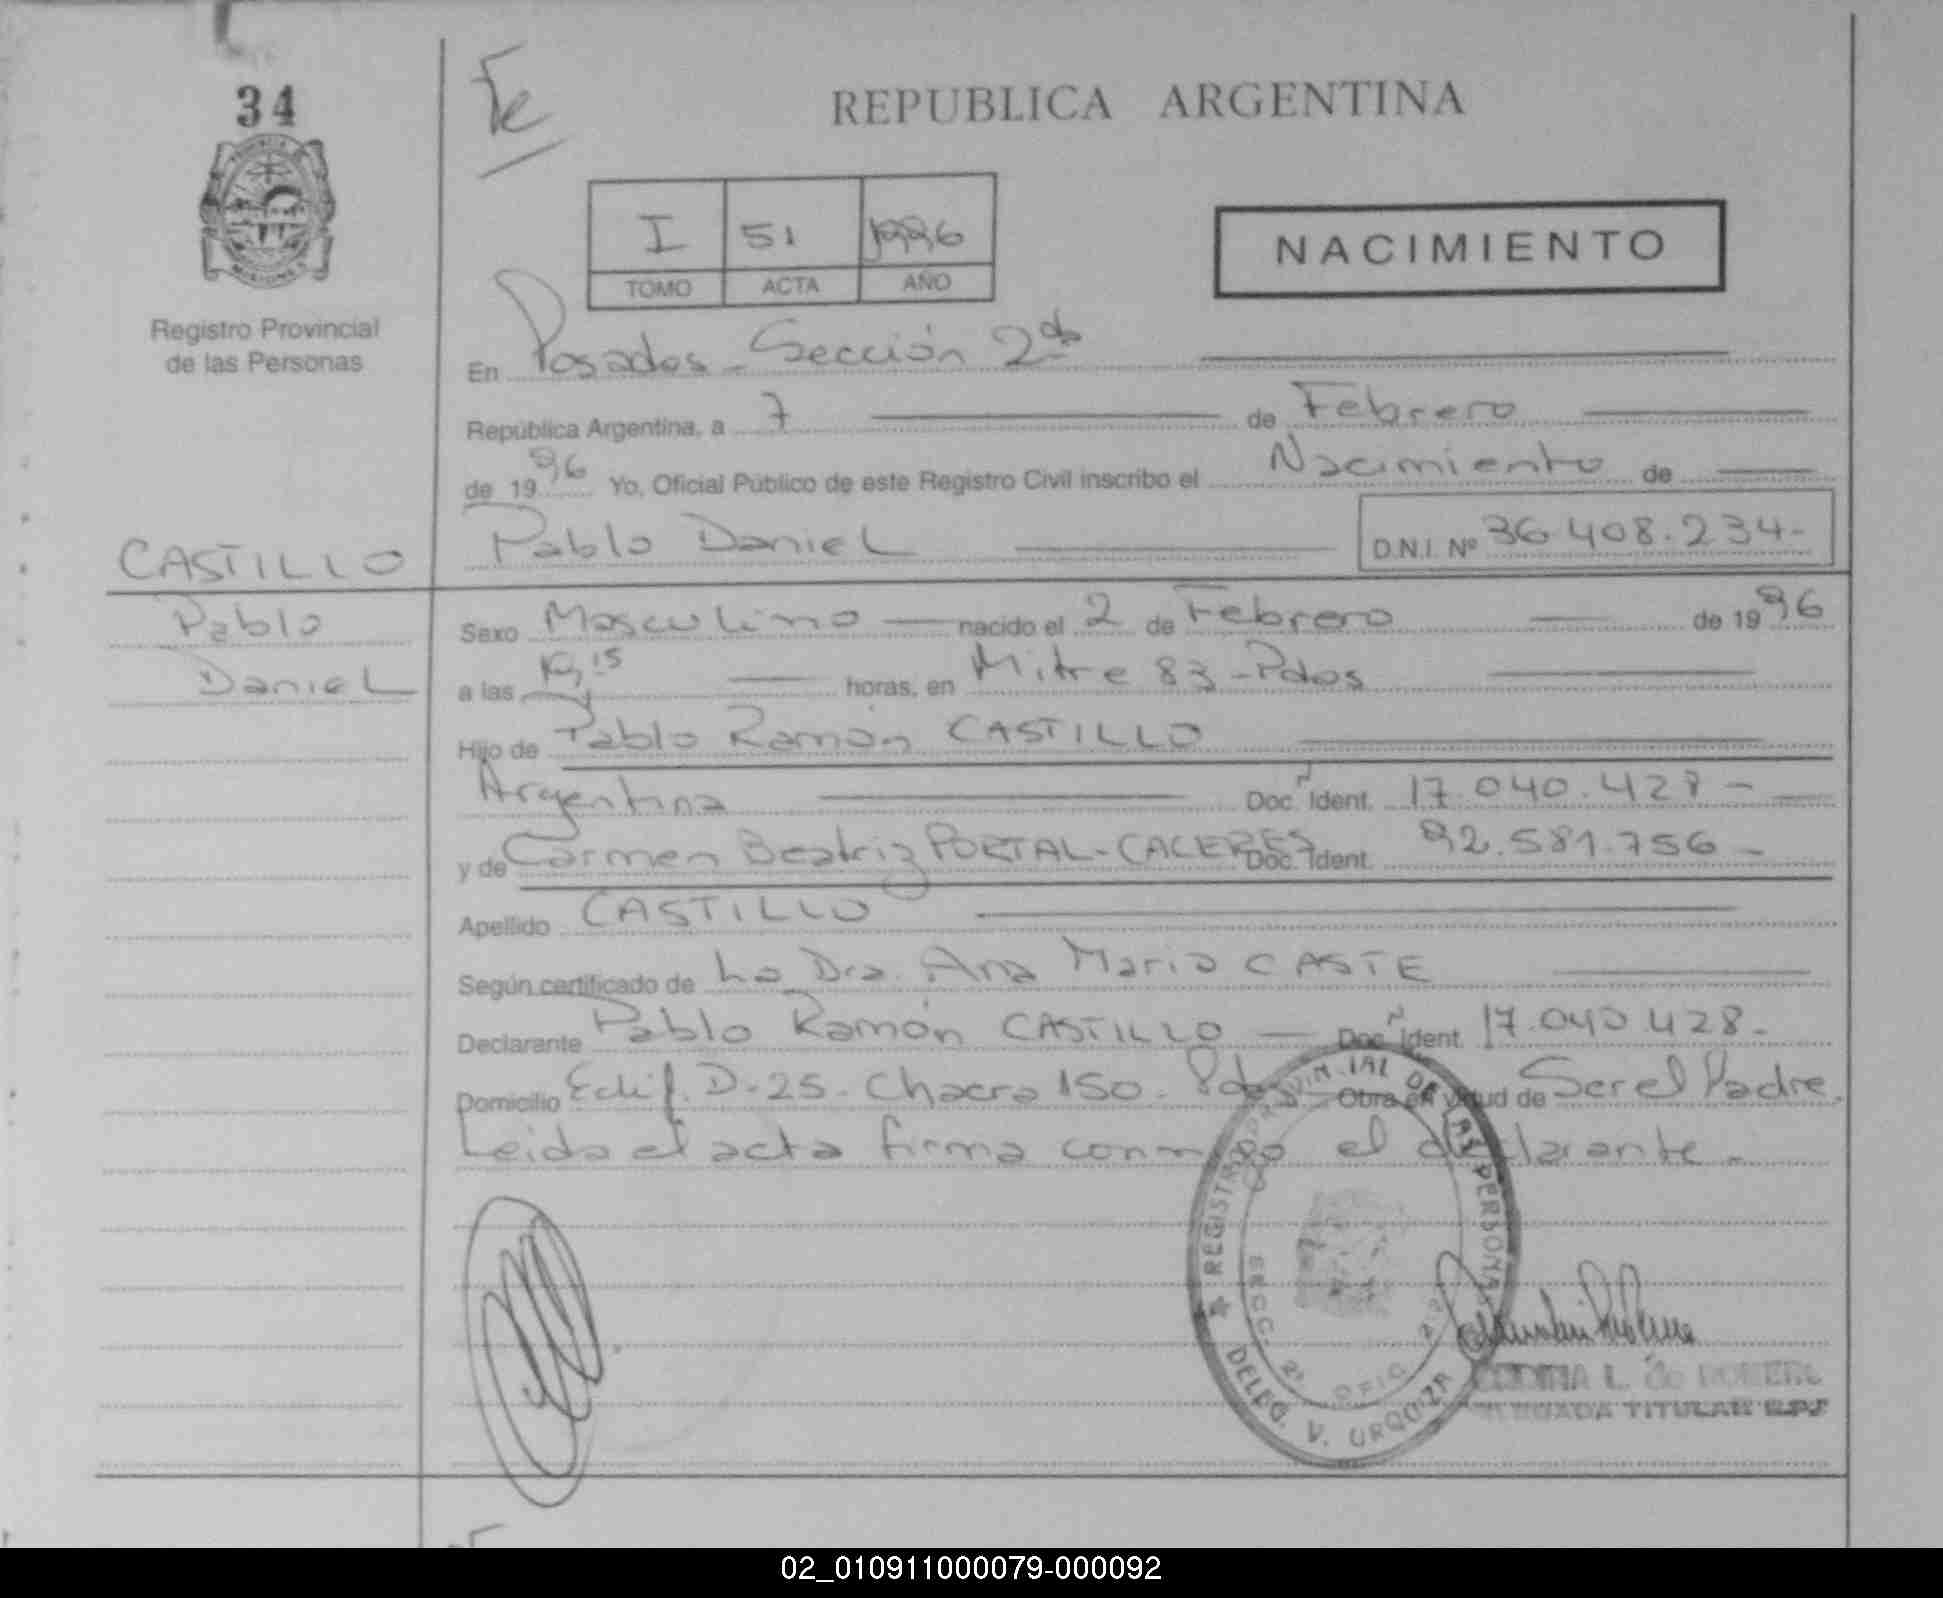 34
Fe
REPUBLICA ARGENTINA
I 51 1996
TOMO ACTA AÑO
NACIMIENTO
MISIONES
Registro Provincial
de las Personas
En Posadas - Sección 2da
República Argentina, a 7 de Febrero
de 1996 Yo, Oficial Público de este Registro Civil inscribo el Nacimiento de
CASTILLO Pablo Daniel D.N.I. Nº 36.408.234-
Pablo
Daniel
Sexo Masculino nacido el 2 de Febrero de 1996
a las 15 horas, en Mitre 83 - Pdas
Hijo de Pablo Ramón CASTILLO
Argentina Doc. Ident. 17.040.428 -
y de Carmen Beatriz PORTAL - CACERES Doc. Ident. 92.581.756 -
Apellido CASTILLO
Según certificado de La Dra. Ana Maria CASTE
Declarante Pablo Ramón CASTILLO - Doc. Ident. 17.040.428.-
Domicilio Edif. D-25 - Chacra 150 - Pdas - Obra en virtud de Ser el Padre.
Leida el acta firma conmigo el declarante.-
REGISTRO PROVINCIAL DE LAS PERSONAS
DELEG. V. URQUIZA
SECC. 2º OFIC. 2º
L. de
TITULAR R.P.P.
02_010911000079-000092